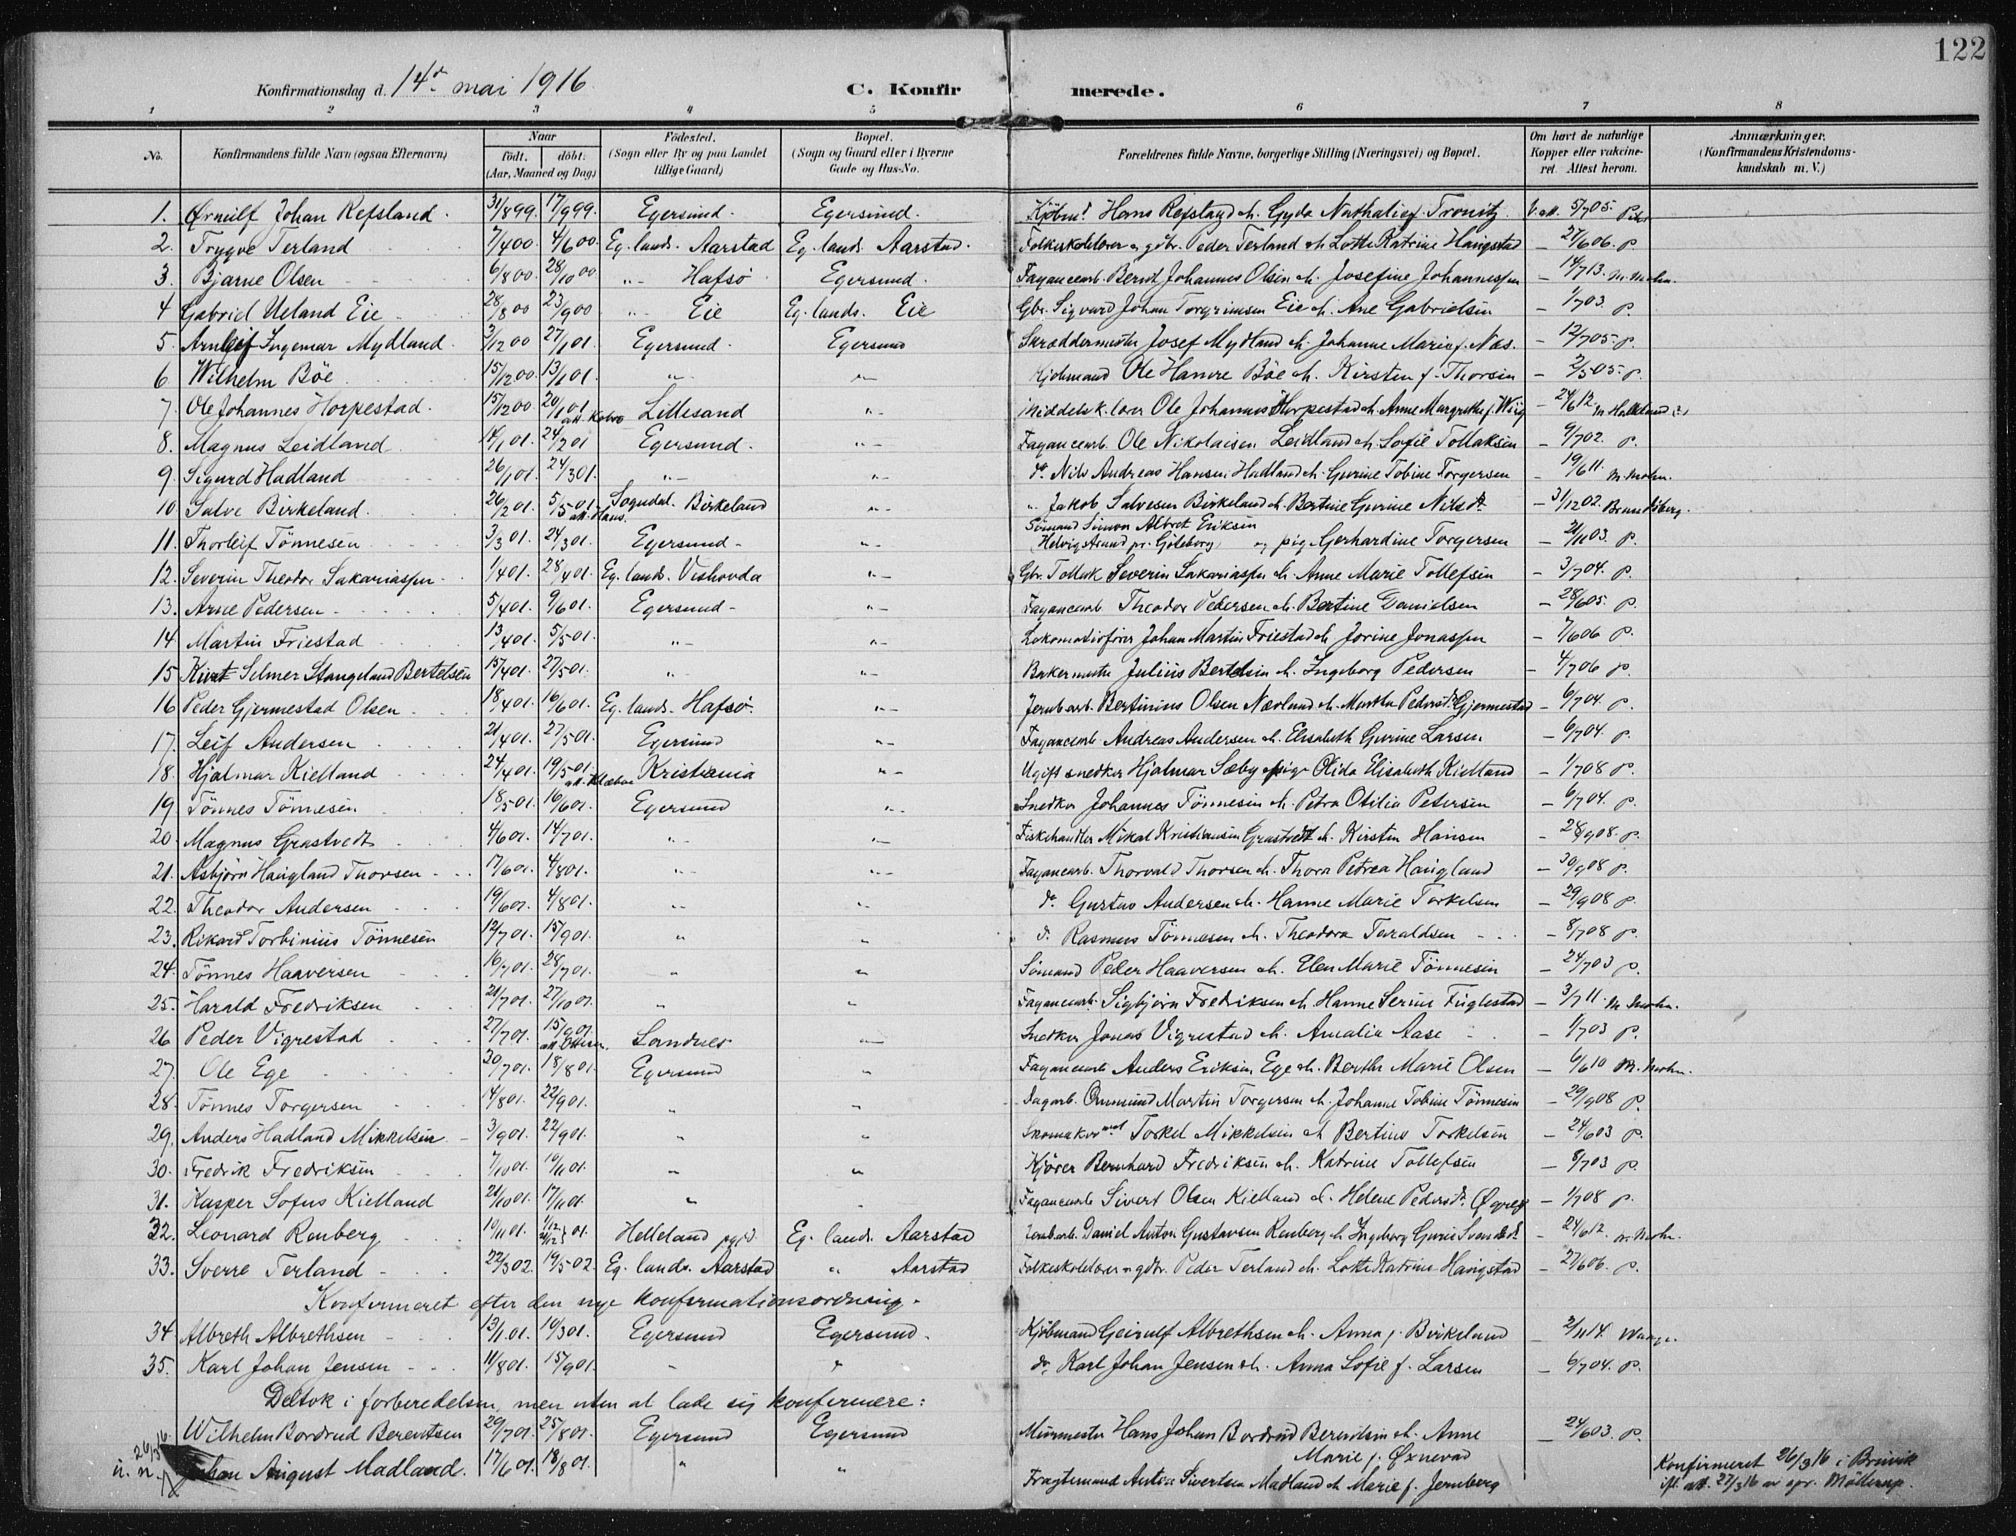 122
Konfirmationsdag d. 14de mai 1916. C. Konfirmerede.
1 2 3 4 5 6 7 8
No. Konfirmandens fulde Navn (ogsaa Efternavn) Naar födt. döbt. (Aar, Maaned og Dag) Födested. (Sogn eller By og paa Landet tillige Gaard) Bopæl. (Sogn og Gaard eller i Byerne Gade og Hus-No. Forældrenes fulde Navne, borgerlige Stilling (Næringsvei) og Bopæl. Om havt de naturlige Kopper eller vakcineret. Attest herom. Anmærkninger. (Konfirmandens Kristendomskundskab m. V.)
1. Ørnulf Johan Refsland. 31/8 99. 17/9 99. Egersund. Egersund. Kjöbmd Hans Refsland & Gyda Nathalie f. V. att. 5/7 05.
2. Trygve Terland 7/4 00. 4/6 00. Eg. lands. Aarstad Eg. lands. Aarstad. Folkeskolelærer og gdbr. Peder Terland & Lotte Katrine Haugstad – 27/6 06. p.
3. Bjarne Olsen 6/8 00. 28/10 00 "– Hafsö Egersund. Fayancearb. Berndt Johannes Olsen & Josefine Johannessen – 14/7 13.
4 Gabriel Ueland Eie 28/8 00 23/9 00 "– Eie Eg. lands. Eie Gbr. Sigvard Johan Torgrimsen Eie & Ane Gabrielsen – 1/7 03. p
5. Arnleif Ingemar Mydland. 3/12 00 27/1 01. Egersund. Egersund Skræddermester Josef Mydland & Johanne Marie f. Næs. – 12/7 05. p.
6. Wilhelm Böe 15/12 00. 13/1 01. "– "– Kjöbmand Ole Hamre Böe & Kirsten f. Thorsen – 2/5 05. p.
7. Ole Johannes Horpestad. 15/12 00. 20/1 01 Lillesand "– Middelsk.lærer Ole Johannes Horpestad & Anne Margrethe f. Wiig – 24/6 12.
8. Magnus Leidland 14/1 01. 24/2 01 Egersund. "– Fayancearb. Ole Nikolaisen Leidland & Sofie Tollaksen – 9/7 02. p.
9. Sigurd Hadland 26/1 01. 24/3 01. "– do. Nils Andreas Hansen Hadland & Gurine Tobine Torgersen – 19/6 11.
10. Salve Birkeland. 26/2 01. 5/5 01. Sogndal. Birkeland "– " Jakob Salvesen Birkeland & Bertine Gurine Nilsdt. – 31/12 02.
11. Thorleif Tönnesen 3/3 01. 24/3 01. Egersund – "– Sömand Simon Albret Eriksen (Helvigstrand pr. Göteborg) og pige Gerhardine Torgersen – 21/11 03. p.
12. Severin Theodor Sakariassen 1/4 01. 28/4 01. Eg. lands. Vishovda "– Gbr. Tollak Severin Sakariassen & Anne Marie Tollefsen – 3/7 04. p.
13. Arne Pedersen 5/4 01. 9/6 01. Egersund – "– Fayancearb Theodor Pedersen & Bertine Danielsen – 28/6 05. p.
14 Martin Friestad 13/4 01. 5/5 01. "– "– Lokomotivförer Johan Martin Friestad & Jorine Jonassen – 7/6 06 p.
15 Kurt Selmer Stangeland Bertelsen 15/4 01. 27/5 01. "– "– Bakermester Julius Bertelsen & Ingeborg Pedersen – 4/7 06 p.
16 Peder Gjermestad Olsen 18/4 01. 16/6 01. Eg. lands. Hafsö. "– Jernb.arb. Bertinius Olsen Nærland & Martha Pedersdt. Gjermestad – 6/7 04. p.
17. Leif Andersen 21/4 01. 27/5 01. Egersund "– Fayancearb Andreas Andersen & Elisabeth Gurine Larsen – 6/7 04. p.
18. Hjalmar Kielland 24/4 01. 19/5 01. Kristiania "– Ugift snedker Hjalmar Sæby & pige Olida Elisabeth Kielland – 1/7 08 p.
19 Tönnes Tönnesen 18/5 01. 16/6 01. Egersund "– Snedker Johannes Tönnesen & Petra Otilia Petersen – 6/7 04. p.
20. Magnus Grastvedt 4/6 01. 14/7 01. "– "– Fiskehandler Mikal Kristiansen Grastvedt & Kirsten Hansen – 28/9 08. p.
21. Asbjörn Haugland Thorsen 17/6 01. 4/8 01. "– "– Fayancearb. Thorvald Thorsen & Thora Petrea Haugland – 30/9 08 p.
22. Theodor Andersen 19/6 01. 4/8 01. "– "– do. Gustav Andersen & Hanne Marie Torkelsen – 29/9 08 p.
23. Rikard Torbinius Tönnesen 12/7 01. 15/9 01. " "– d. Rasmus Tönnesen & Theodora Taraldsen – 8/7 08 p.
24. Tönnes Haaversen 16/7 01. 28/7 01. " "– Sömand Peder Haaversen & Elen Marie Tönnesen – 24/7 03 p.
25. Harald Fredriksen 21/7 01. 27/10 01. " " Fayancearb. Sigbjörn Fredriksen & Hanne Serine Fuglestad – 3/7 11.
26 Peder Vigrestad 27/7 01. 15/9 01. Sandnes "– Snedker Jonas Vigrestad & Amalia Aase – 1/7 03 p.
27. Ole Ege 20/7 01. 18/8 01. Egersund " Fayancearb Anders Eriksen Ege & Berthe Marie Olsen – 6/6 10
28. Tönnes Torgersen 14/8 01. 22/9 01. " " Dagarb. Ommund Martin Torgersen & Johanne Tobine Tönnesen – 29/9 08 p.
29. Anders Hadland Mikkelsen 3/9 01. 22/9 01. " " Skomaker Torkel Mikkelsen & Bertine Torkelsen – 24/6 03 p.
30. Fredrik Fredriksen 7/10 01. 10/11 01. " " Kjörer Bernhard Fredriksen & Katrine Tollefsen – 8/7 03 p.
31. Kasper Sofus Kielland 21/10 01. 17/11 01. " Fayancearb Sivert Olsen Kielland & Helene Pedersdt. – 1/7 08 p.
32. Leonard Renberg 10/11 01. 01. Helleland pgjd. Eg. lands. Aarstad Jernb.arb. Daniel Anton Gustavsen Renberg & Ingeborg Gurine – 24/6 12.
33. Sverre Terland 22/3 02. 19/5 02. Eg. lands. Aarstad " Aarstad Folkeskolelærer og gdbr. Peder Terland & Lotte Katrine Haugstad – 27/6 06. p.
Konfirmeret efter den nye konfirmationsordning.
34 Albreth Albrethsen 13/1 01. 10/3 01. Egersund Egersund. Kjöbmand Geirulf Albrethsen & Anna f. Birkeland – 2/11 14
35. Karl Johan Jensen 11/8 01. 15/9 01. " " do. Karl Johan Jensen & Anna Sofie f. Larsen – 6/7 04. p.
Deltok i forberedelsen, men uten at lade sig konfirmere:
Wilhelm Bordrud Berentsen 29/7 01. 25/8 01. Egersund Egersund Murmester Hans Johan Bordrud Berentsen & Anne Marie f. Øxnevad – 24/6 03. p.
26/3 16. Johan August Madland. 17/6 01. 18/8 01. " " Fragtemand Anton Sivertsen Madland & Marie f. Jernberg Konfirmeret 26/3 16 i ifl. att. 27/3 16 av spr.